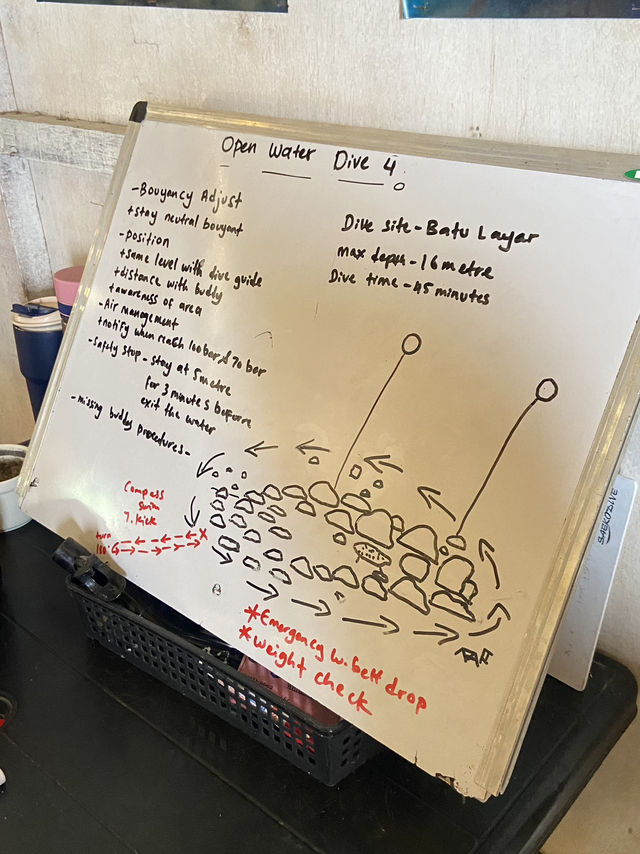 Open Water Dive 4
- Bouyancy Adjust
+ stay neutral bouyant
- position
+ same level with dive guide
+ distance with buddy
+ awareness of area
- Air management
+ notify when reach 100bar & 70 bar
- Safety stop - stay at 5 metre
for 3 minutes beforre
exit the water
- missing buddy procedures -
Dive site - Batu Layar
max depth - 16 metre
Dive time - 45 minutes
Compass
swim
7. kick
turn
180°
X
* Emergency w. belt drop
* weight check
SAEKODIVE